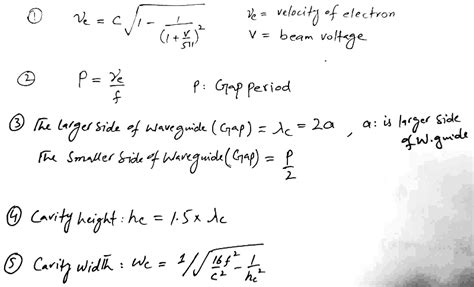 ① Ve = C √(1 - 1/(1 + V/511)²) Ve = velocity of electron
V = beam voltage
② P = Ve/f P: Gap period
③ The larger side of waveguide (Gap) = λc = 2a , a: is larger side of W.guide
The smaller side of waveguide (Gap) = P/2
④ Cavity height: hc = 1.5 x λc
⑤ Cavity width: Wc = 1/√(16f²/c² - 1/hc²)